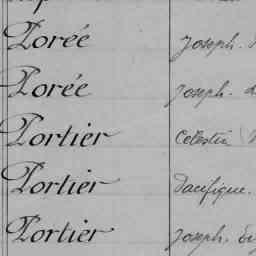 Porée Joseph.
Porée Joseph.
Portier Célestin
Portier Pacifique.
Portier Joseph.